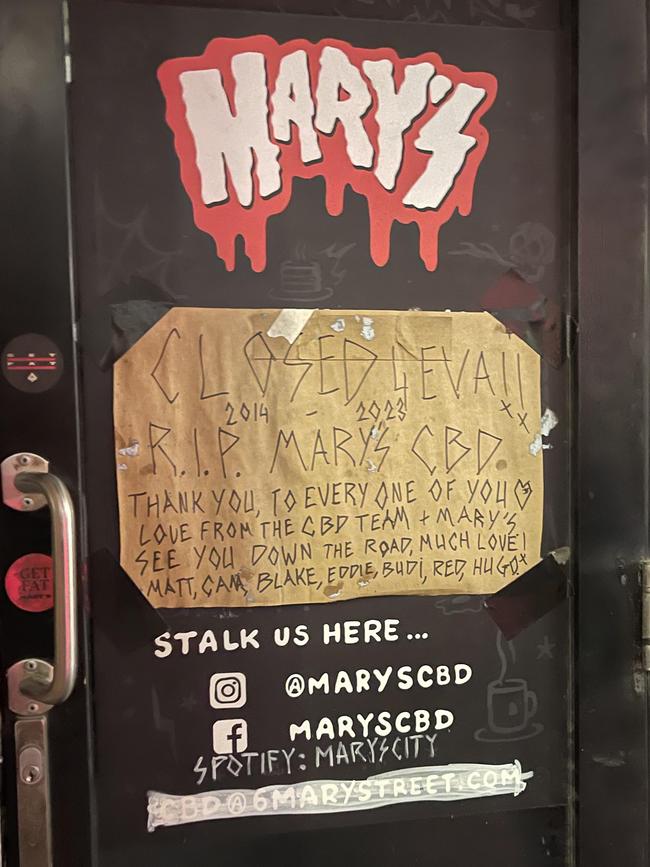 MARY'S
CLOSED 4EVA!!
2014 - 2023 XX
R.I.P. MARY'S CBD.
THANK YOU, TO EVERY ONE OF YOU ♡
LOVE FROM THE CBD TEAM + MARY'S
SEE YOU DOWN THE ROAD, MUCH LOVE!
MATT, CAM, BLAKE, EDDIE, BUDI, RED, HUGO.x
GET
FAT
STALK US HERE...
@MARYSCBD
MARYSCBD
SPOTIFY: MARYSCITY
CBD@6MARYSTREET.COM